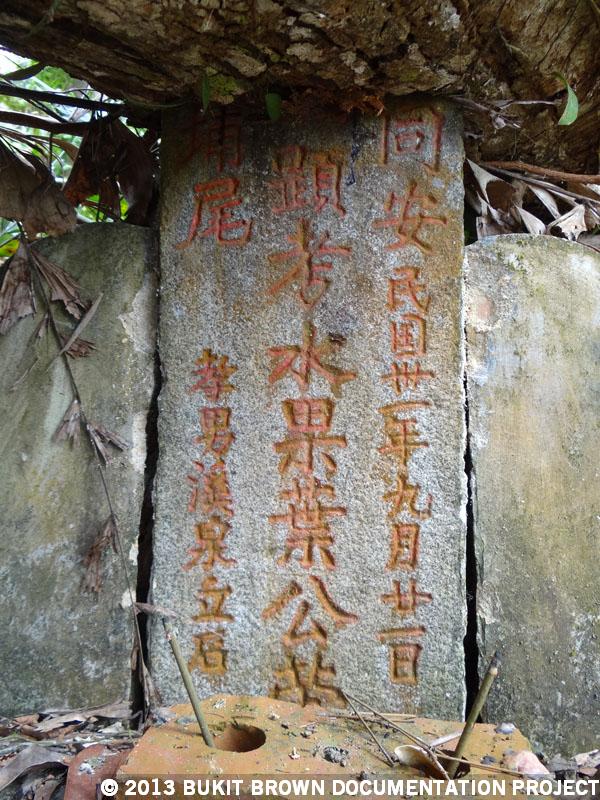 同安
民国卅一年九月廿一日
顯考水果葉公墓
埔尾
孝男漢泉立石
© 2013 BUKIT BROWN DOCUMENTATION PROJECT